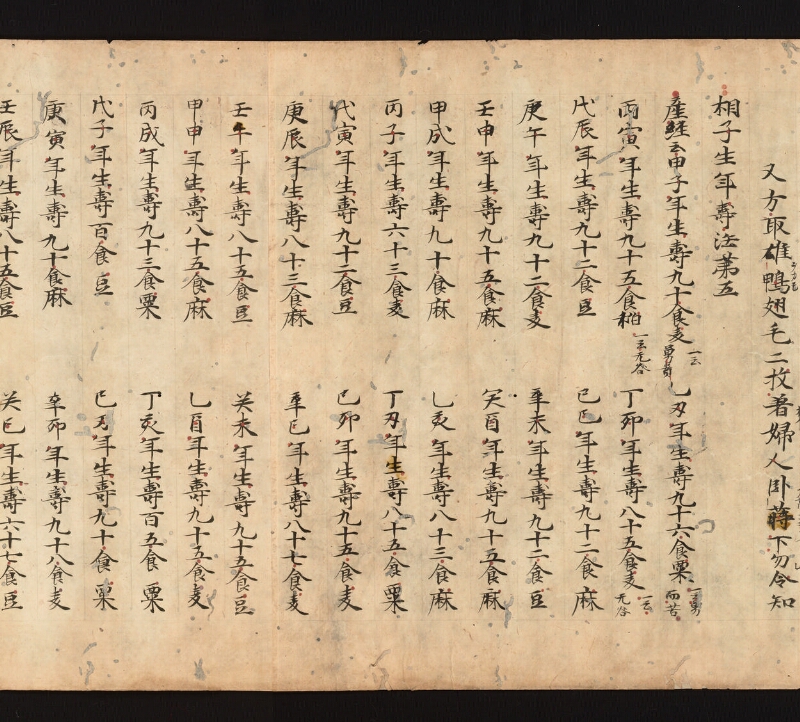 又方取雄鴨翅毛二枚着婦人卧蓐下勿令知
相子生年壽法第五
産経云甲子年生壽九十食麦 一云勇者 乙丑年生壽九十六食粟 一云勇而苦
丙寅年生壽九十五食稻 一云无咎 丁卯年生壽八十五食麦 一云无咎
戊辰年生壽九十二食豆 己巳年生壽九十二食麻
庚午年生壽九十二食麦 辛未年生壽九十二食豆
壬申年生壽九十五食麻 癸酉年生壽九十五食麻
甲戌年生壽九十食麻 乙亥年生壽八十三食麻
丙子年生壽六十三食麦 丁丑年生壽八十五食粟
戊寅年生壽九十二食豆 己卯年生壽九十五食麦
庚辰年生壽八十三食麻 辛巳年生壽八十七食麦
壬午年生壽八十五食豆 癸未年生壽九十五食豆
甲申年生壽八十五食麻 乙酉年生壽九十五食麦
丙戌年生壽九十三食粟 丁亥年生壽百五食粟
戊子年生壽百食豆 己丑年生壽九十食粟
庚寅年生壽九十食麻 辛卯年生壽九十八食麦
壬辰年生壽八十五食豆 癸巳年生壽六十七食豆